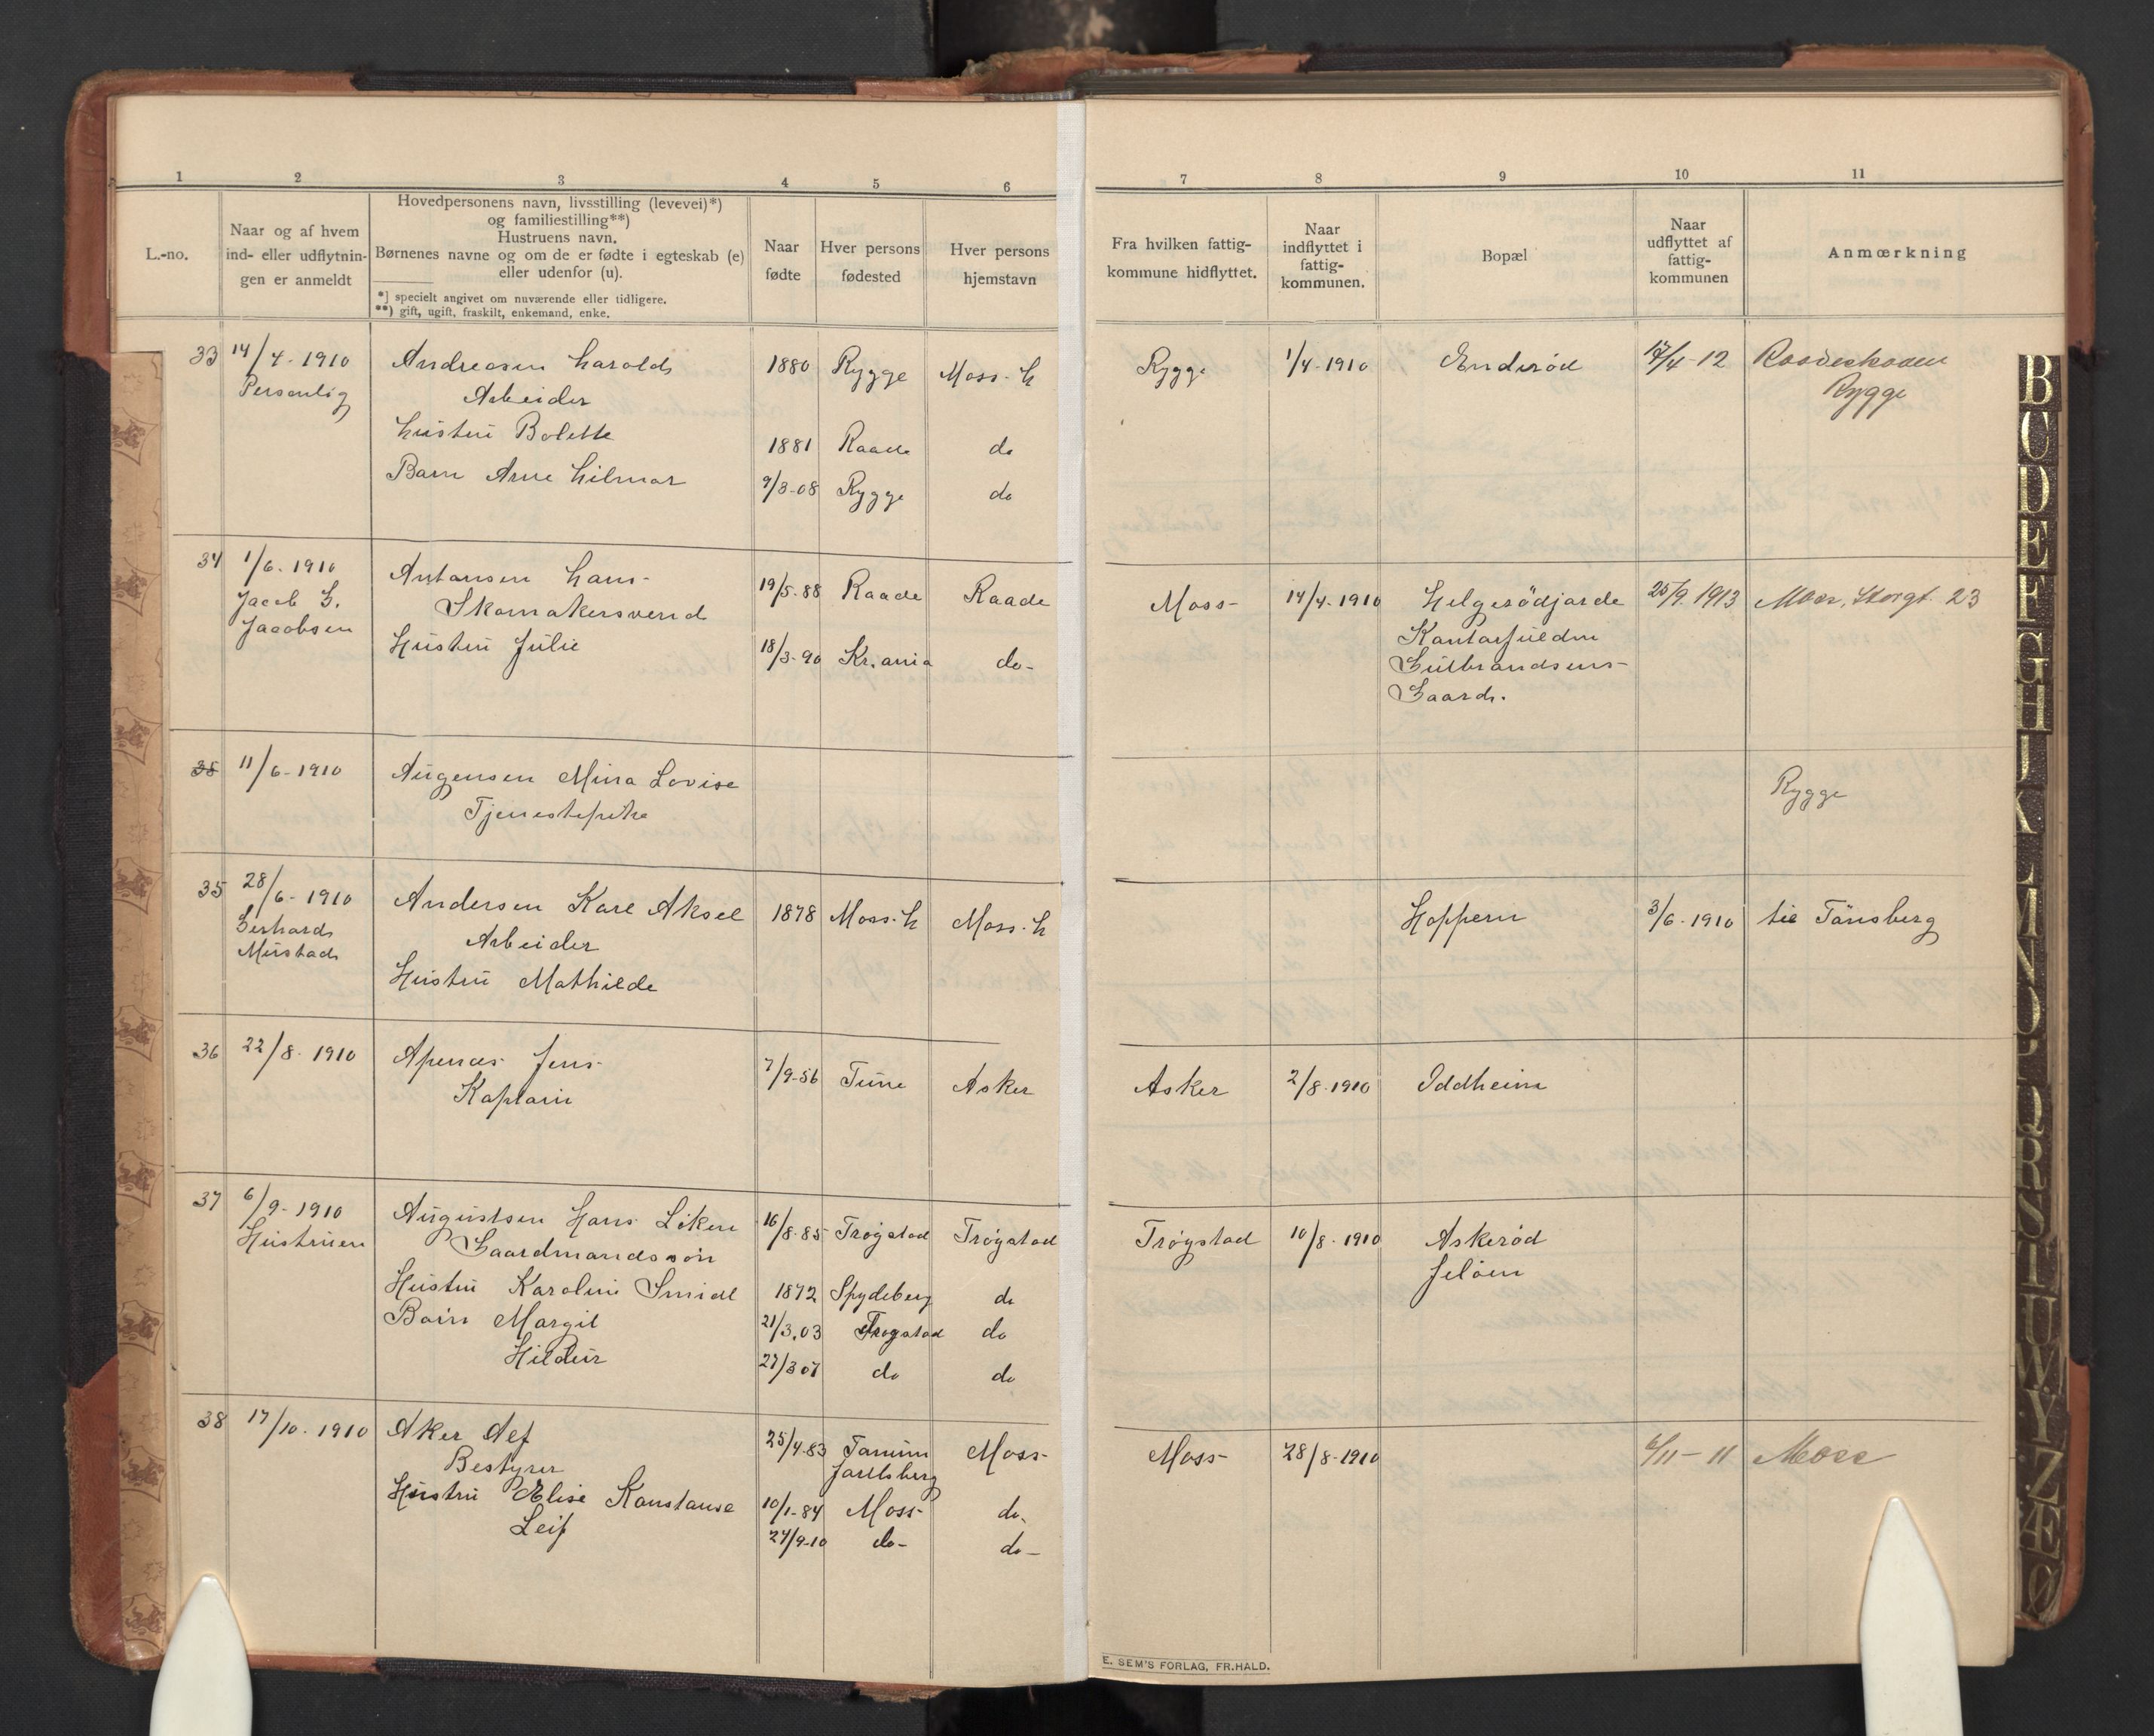 1 2 3 4 5 6 7 8 9 10 11
L.-no.
Naar og af hvem
ind- eller udflytnin-
gen er anmeldt
Hovedpersonens navn, livsstilling (levevei)*)
og familiestilling**)
Hustruens navn.
Børnenes navne og om de er fødte i egteskab (e)
eller udenfor (u).
*] specielt angivet om nuværende eller tidligere.
**) gift, ugift, fraskilt, enkemand, enke.
Naar
fødte
Hver persons
fødested
Hver persons
hjemstavn
Fra hvilken fattig-
kommune hidflyttet.
Naar
indflyttet i
fattig-
kommunen.
Bopæl
Naar
udflyttet af
fattig-
kommunen
Anmærkning
33 14/4-1910 Andreasen Harald 1880 Rygge Moss-h Rygge 1/4-1910 Enderød 17/4-12
Personlig Arbeider Rygge
Hustru Bolette 1881 Raade do
Barn Arne Hilmar 9/3-08 Rygge do
34 1/6-1910 Antonsen Hans- 19/5-88 Raade Raade Moss- 14/4-1910 Helgerødjarde 25/9.1913 Moss, Storgt. 23
Jacob G. Skomakersvend
Jacobsen Hustru Julie 18/3-90 Kr.ania do-
Gulbrandsens-
Gaard.
35 11/6-1910 Augensen Mina Lovise Rygge
Tjenestepike
35 28/6-1910 Andersen Karl Aksel 1878 Moss-h Moss-h Hoppern 3/6-1910 til Tönsberg
Gerhard Arbeider
Mustad Hustru Mathilde
36 22/8-1910 Apenæs Jens- 7/9-56 Tune Asker Asker 2/8-1910 Oddheim
Kaptain
37 6/9-1910 Augustsen Hans Löken 16/8-85 Trøgstad Trøgstad Trøgstad 10/8-1910 Askerød
Hustruen Gaardmandssøn Jeløen
Hustru Karoline Smidt 1872 Spydeberg do
Børn Margit 21/3.03 Trøgstad do
Hildur 27/3 07 do do
38 17/10-1910 Aker Alf 25/4-83 Tanum Moss- Moss- 28/8-1910 6/11-11 Moss
Bestyrer Jarlsberg
Hustru Elise Konstanse 10/1-84 Moss- do-
Leif 27/9-10 do- do-
E. SEM'S FORLAG, FR.HALD.
B
C
D
E
F
G
H
I
K
L
M
N
O
P
Q
R
S
T
U
W
Y
Z
Æ
Ø